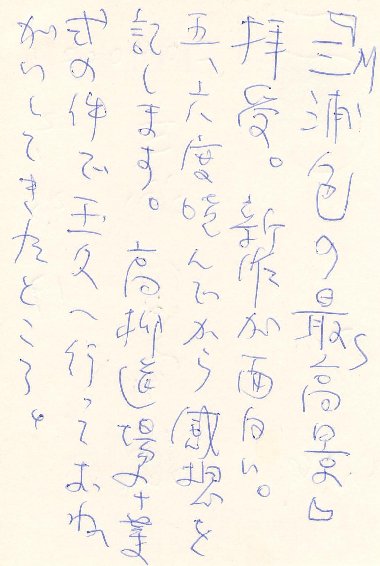 『三浦の最高
拝受。新作が面白い。
五、六度読んでから感想を
記します。高柳道場業
式の件で玉久へ行っておね
がいしてきたところ。